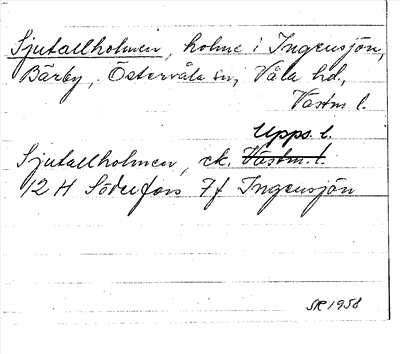 Sjutallholmen, holme i Ingensjön,
Bärby, Östervåla sn, Våla hd,
Vastm l.
Upps. l.
Sjutallholmen, ek. Västm. l.
12 H Söderfors 7f Ingensjön
SR 1958